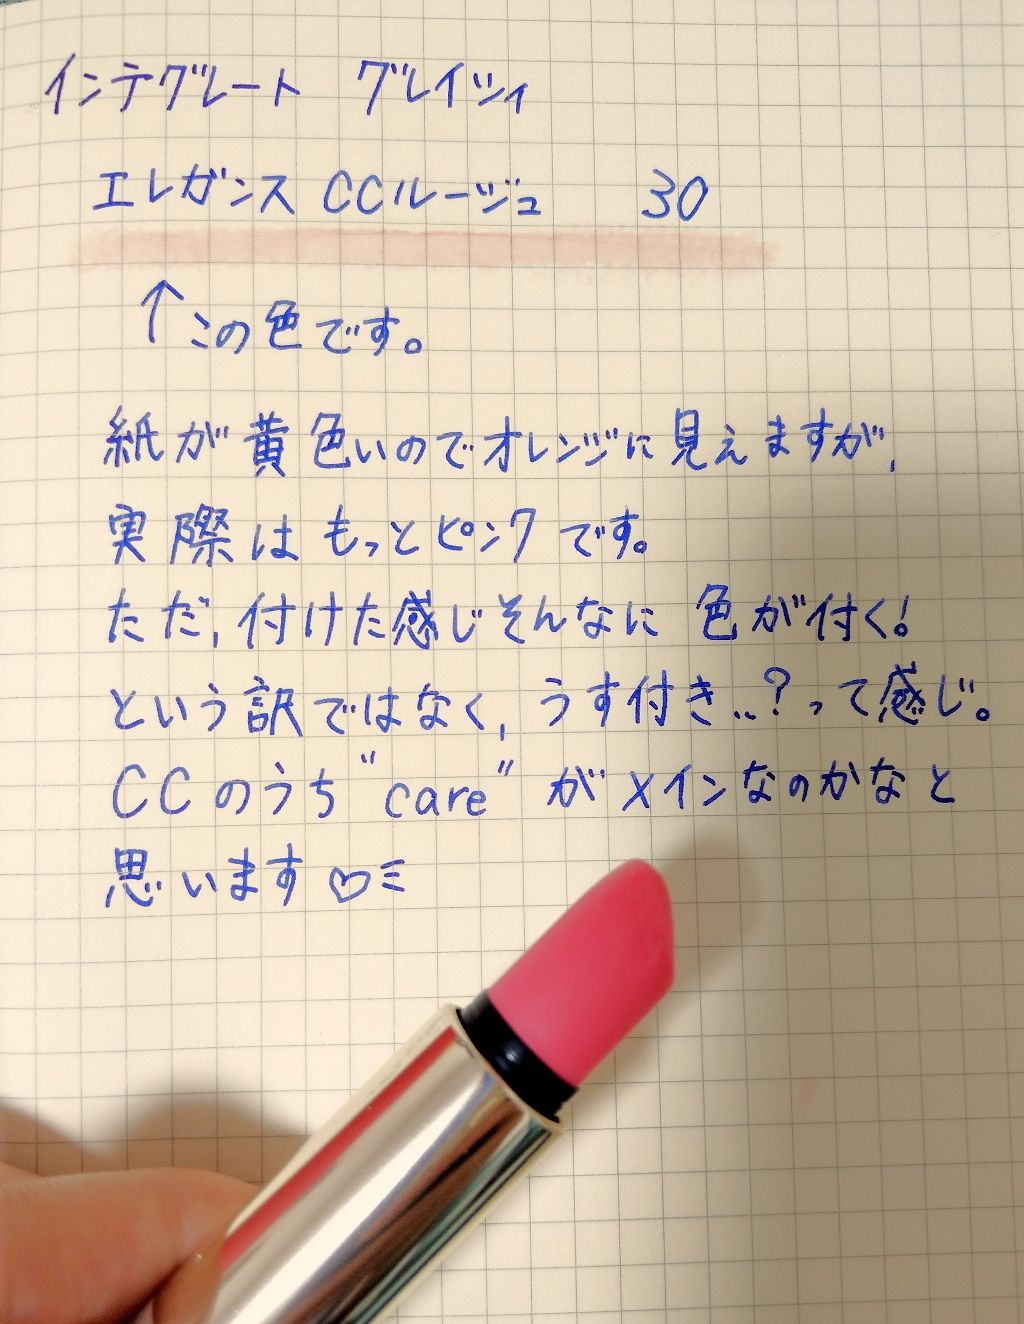 インテグレート グレイシィ
エレガンス CCルージュ 30
↑この色です。
紙が黄色いのでオレンジに見えますが、
実際はもっとピンクです。
ただ、付けた感じそんなに色が付く!
という訳ではなく、うす付き..?って感じ。
CCのうち"care"がメインなのかなと
思います♡ミ